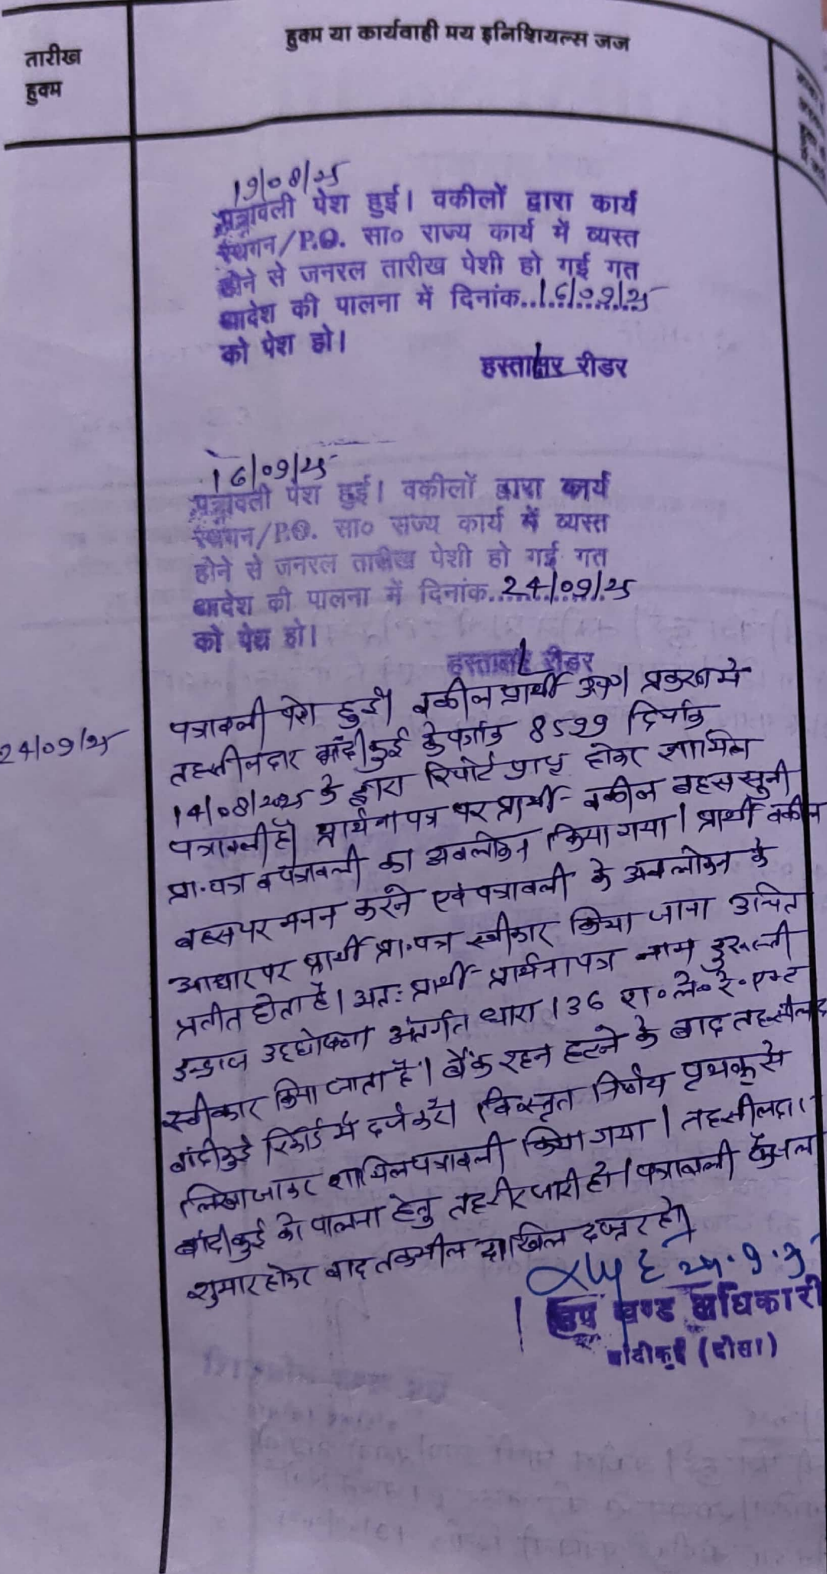 तारीख
हुक्म
हुक्म या कार्यवाही मय इनिशियल्स जज
19/08/25
पत्रावली पेश हुई। वकीलों द्वारा कार्य
स्थगन/P.O. सा० राज्य कार्य में व्यस्त
होने से जनरल तारीख पेशी हो गई गत
आदेश की पालना में दिनांक..16/09/25
को पेश हो।
हस्ताक्षर रीडर
16/09/25
पत्रावली पेश हुई। वकीलों द्वारा कार्य
स्थगन/P.O. सा० राज्य कार्य में व्यस्त
होने से जनरल तारीख पेशी हो गई गत
आदेश की पालना में दिनांक..24/09/25
को पेश हो।
हस्ताक्षर रीडर
24/09/25
पत्रावली पेश हुई। वकील प्रार्थी उप०। प्रकरण में
तहसीलदार बांदीकुई के क्रमांक 8599 दिनांक
14/08/2025 के द्वारा रिपोर्ट प्राप्त होकर शामिल
पत्रावली है। प्रार्थना पत्र पर प्रार्थी वकील बहस सुनी
प्रा.पत्र व पत्रावली का अवलोकन किया गया। प्रार्थी वकील
बहस पर मनन करने एवं पत्रावली के अवलोकन के
आधार पर प्रार्थी प्रा.पत्र स्वीकार किया जाना उचित
प्रतीत होता है। अतः प्रार्थी प्रार्थना पत्र नाम दुरूस्ती
इन्द्राज उद्घोषणा अंतर्गत धारा 136 रा०ले०रे०एक्ट
स्वीकार किया जाता है। बैंक रहन हटने के बाद तहसीलदार
बांदीकुई रिकॉर्ड में दर्ज करे। विस्तृत निर्णय पृथक से
लिखा जाकर शामिल पत्रावली किया गया। तहसीलदार
बांदीकुई को पालना हेतु तहरीर जारी हो। पत्रावली फैसल
शुमार होकर बाद तकमील दाखिल दफ्तर हो।
24.9.25
उप खण्ड अधिकारी
बांदीकुई (दौसा)